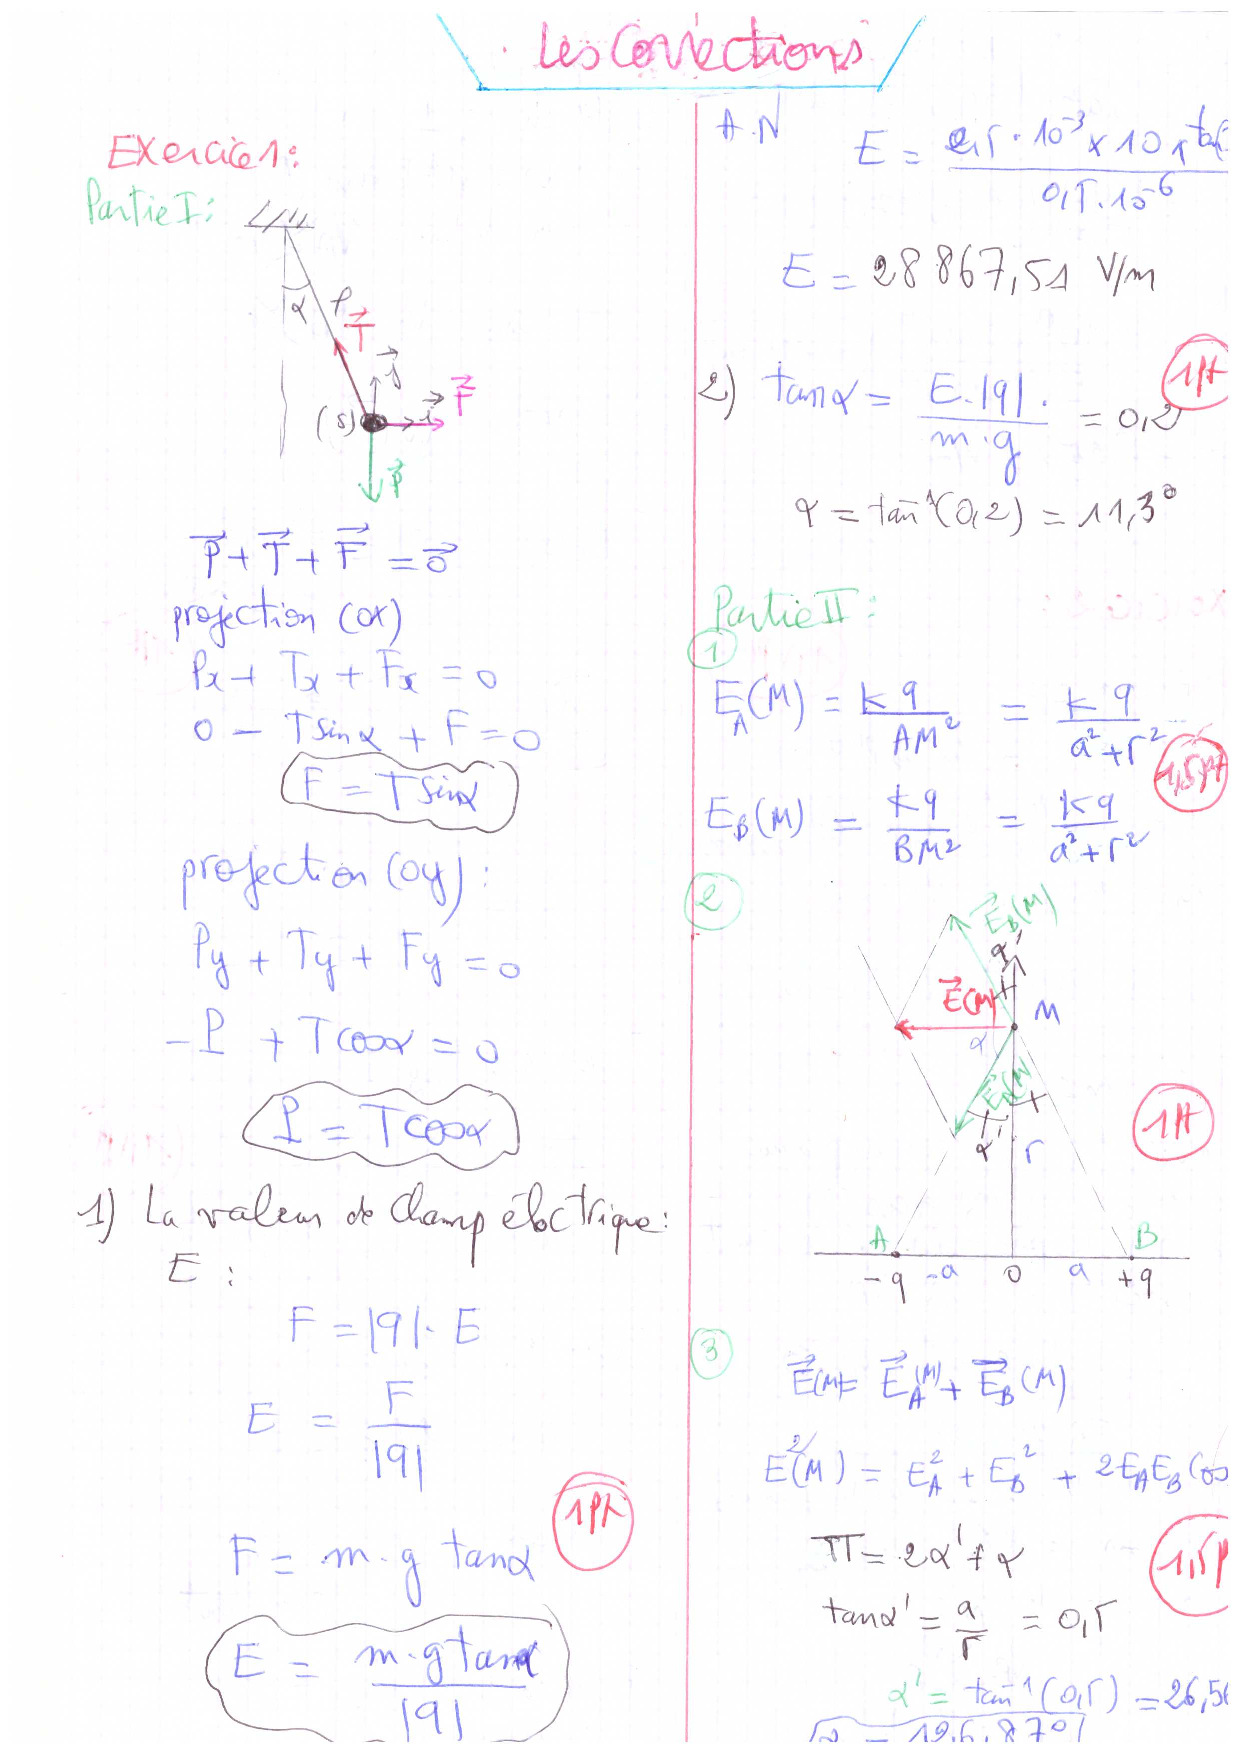 Les Corrections
Exercice 1:
Partie I:
α
l
T
j
i
F
(S)
P
P + T + F = 0
projection (ox)
Px + Tx + Fx = 0
0 - T sin α + F = 0
F = T sin α
projection (oy) :
Py + Ty + Fy = 0
- P + T cos α = 0
P = T cos α
1) La valeur de champ électrique :
E :
F = |q| . E
E = F / |q|
1pt
F = m . g tan α
E = m . g tan α / |q|
A.N
E = 2,5 . 10⁻³ × 10 × tan / 0,5 . 10⁻⁶
E = 28 867,51 V/m
1pt
2) tan α = E . |q| . / m . g = 0,2
α = tan⁻¹(0,2) = 11,3°
Partie II :
1
E_A(M) = k q / AM² = k q / a² + r²
1,5pt
E_B(M) = k q / BM² = k q / a² + r²
2
E_B(M)
α'
E(M)
M
α
E_A(M)
α'
r
1pt
A
B
-q
-a
0
a
+q
3
E(M) = E_A(M) + E_B(M)
E²(M) = E_A² + E_B² + 2 E_A E_B cos
π = 2α' + α
1,5p
tan α' = a / r = 0,5
α' = tan⁻¹(0,5) = 26,56
α = 126,870